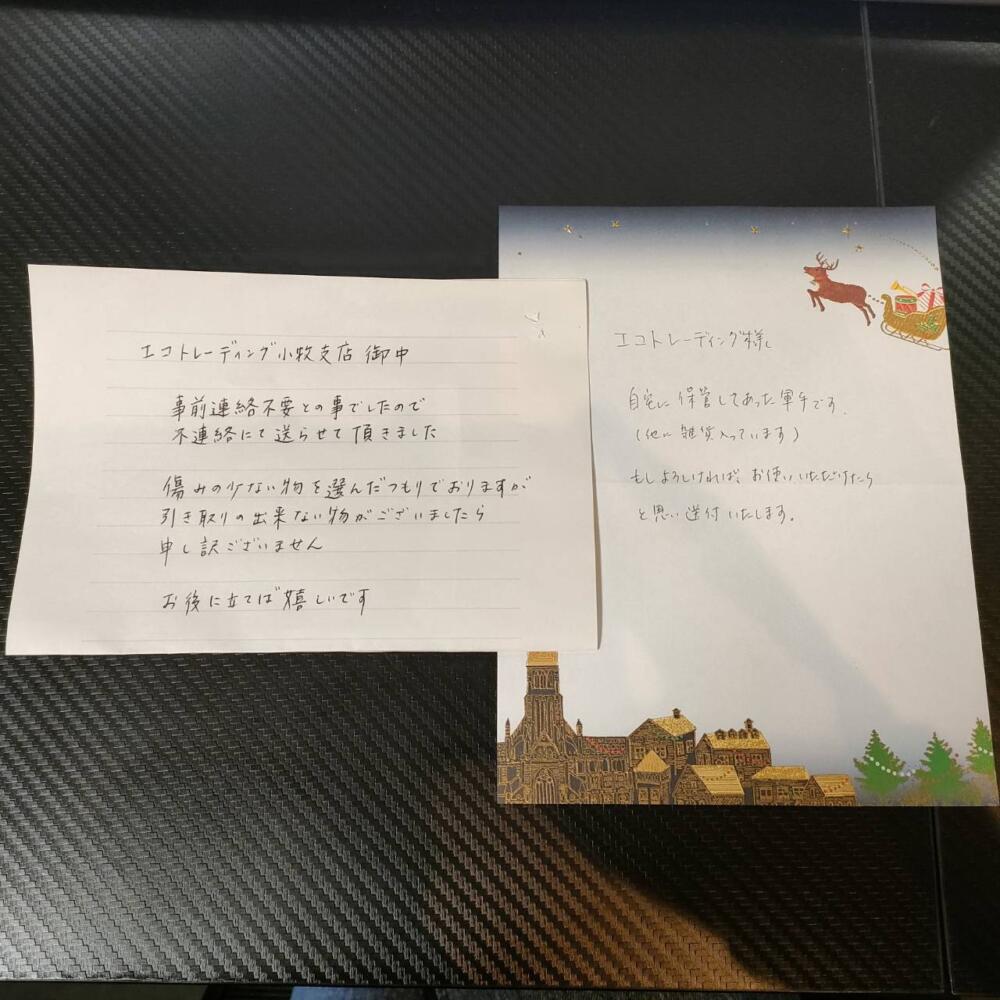 エコトレーディング小牧支店 御中
事前連絡不要との事でしたので
不連絡にて送らせて頂きました
傷みの少ない物を選んだつもりでおりますが
引き取りの出来ない物がございましたら
申し訳ございません
お後に立てば嬉しいです
エコトレーディング様
自宅に保管してあった軍手です。
(他に雑貨入っています)
もしよろしければ、お使いいただけたら
と思い送付いたします。